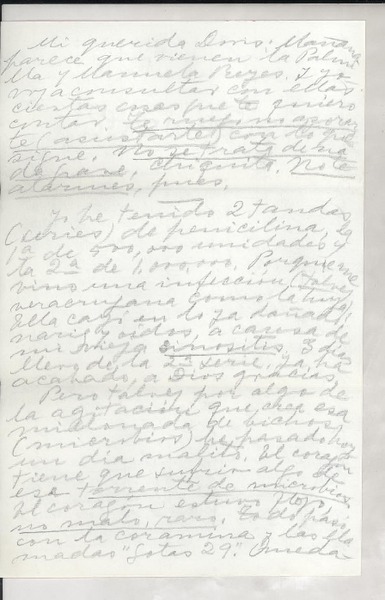 Mi querida Doris: Mañana
parece que vienen la Palmi-
lla y Manuela Reyes. Y yo
voy a consultar con ellas
ciertas cosas que te quiero
contar. Te ruego no azorar-
te (asustarte) con lo que
sigue. No se trata de na-
da grave, chiquita. No te
alarmes, pues.
Yo he tenido 2 tandas
(series) de penicilina, la
1a de 500,000 unidades y
la 2a de 1,000,000. Porque me
vino una infección, (tal vez
veracruzana como la tuya).
Ella cayó en lo ya dañado,
nariz y oídos, a causa de
mi vieja sinositis. 3 días
llevo de la 2a serie, ya ha
acabado, a Dios gracias.
Pero tal vez por algo de
la agitación que crea esa
millonada de bichos
(microbios) he pasado hoy
un día malito. El corazón
tiene que sufrir algo de
ese torrente de microbios.
El corazón estuvo hoy,
no malo, raro. Todo pasó
con la coramina y las lla-
madas "Gotas 29". Queda